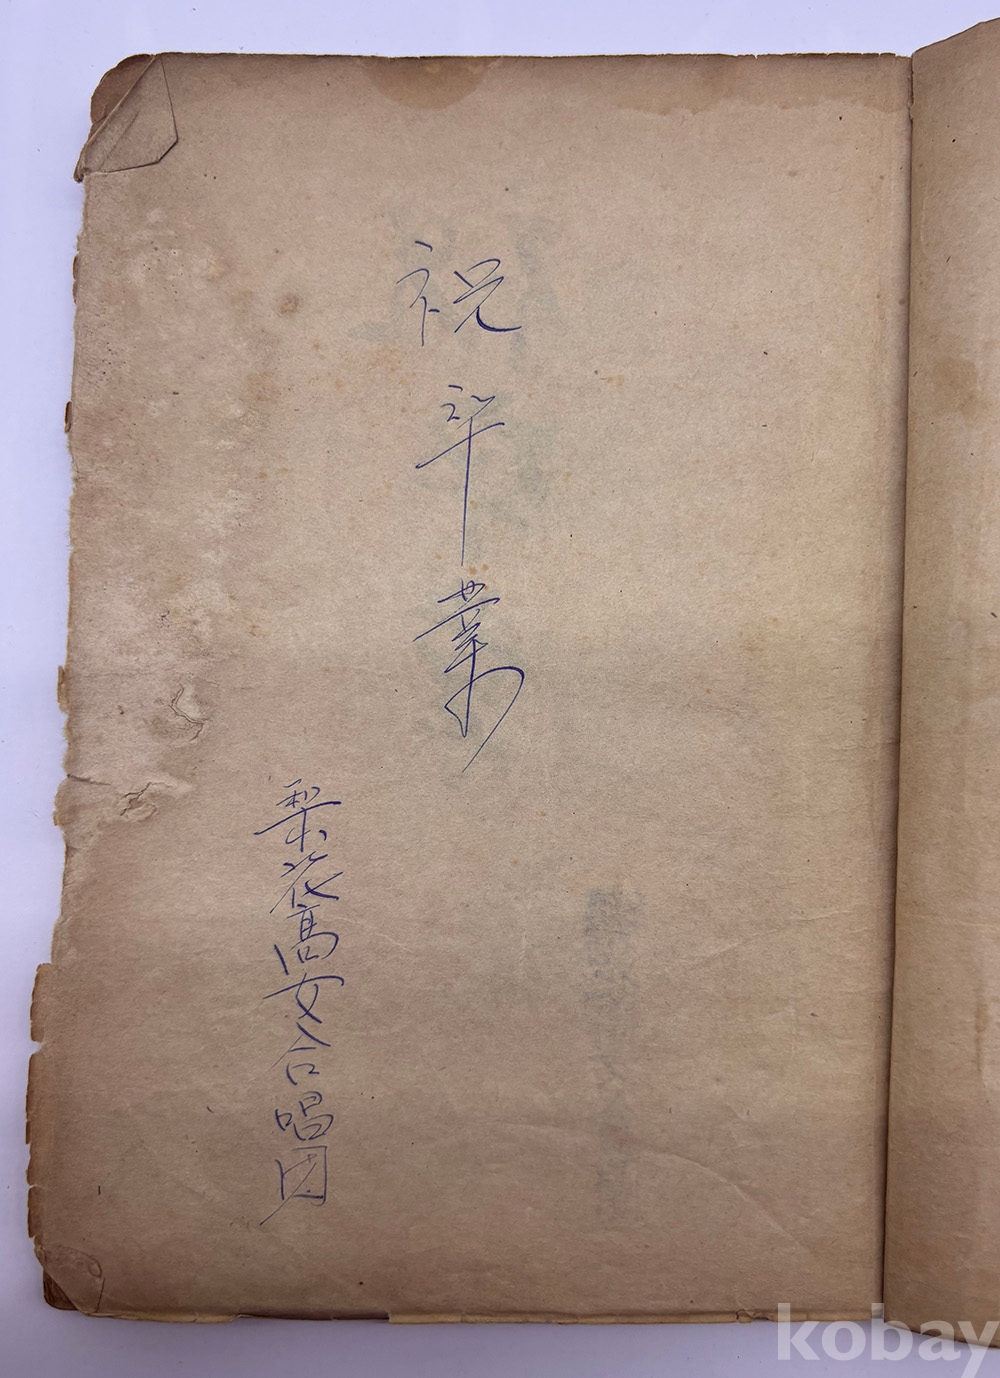 祝卒業
梨花高女合唱団
kobay